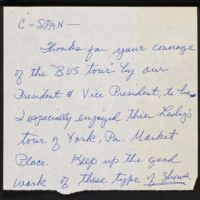 C-SPAN-
Thanks for your coverage
of the "BUS tour" by our
President & Vice President, to be.
I especially enjoyed their
tour of York, Pa. Market
Place. Keep up the good
work of these type of shows.